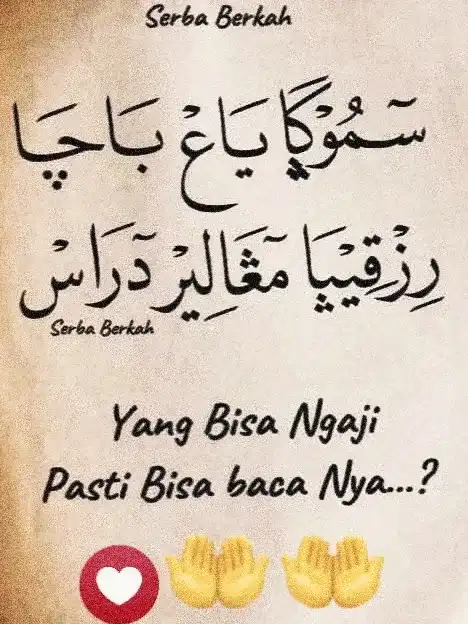 Serba Berkah
سٓـمُوْڮَا يَاعْ بَـاچَـا
رِزْقِيْپَا مٓڠَالِيْرْ دٓرَاسْ
Serba Berkah
Yang Bisa Ngaji
Pasti Bisa baca Nya...?